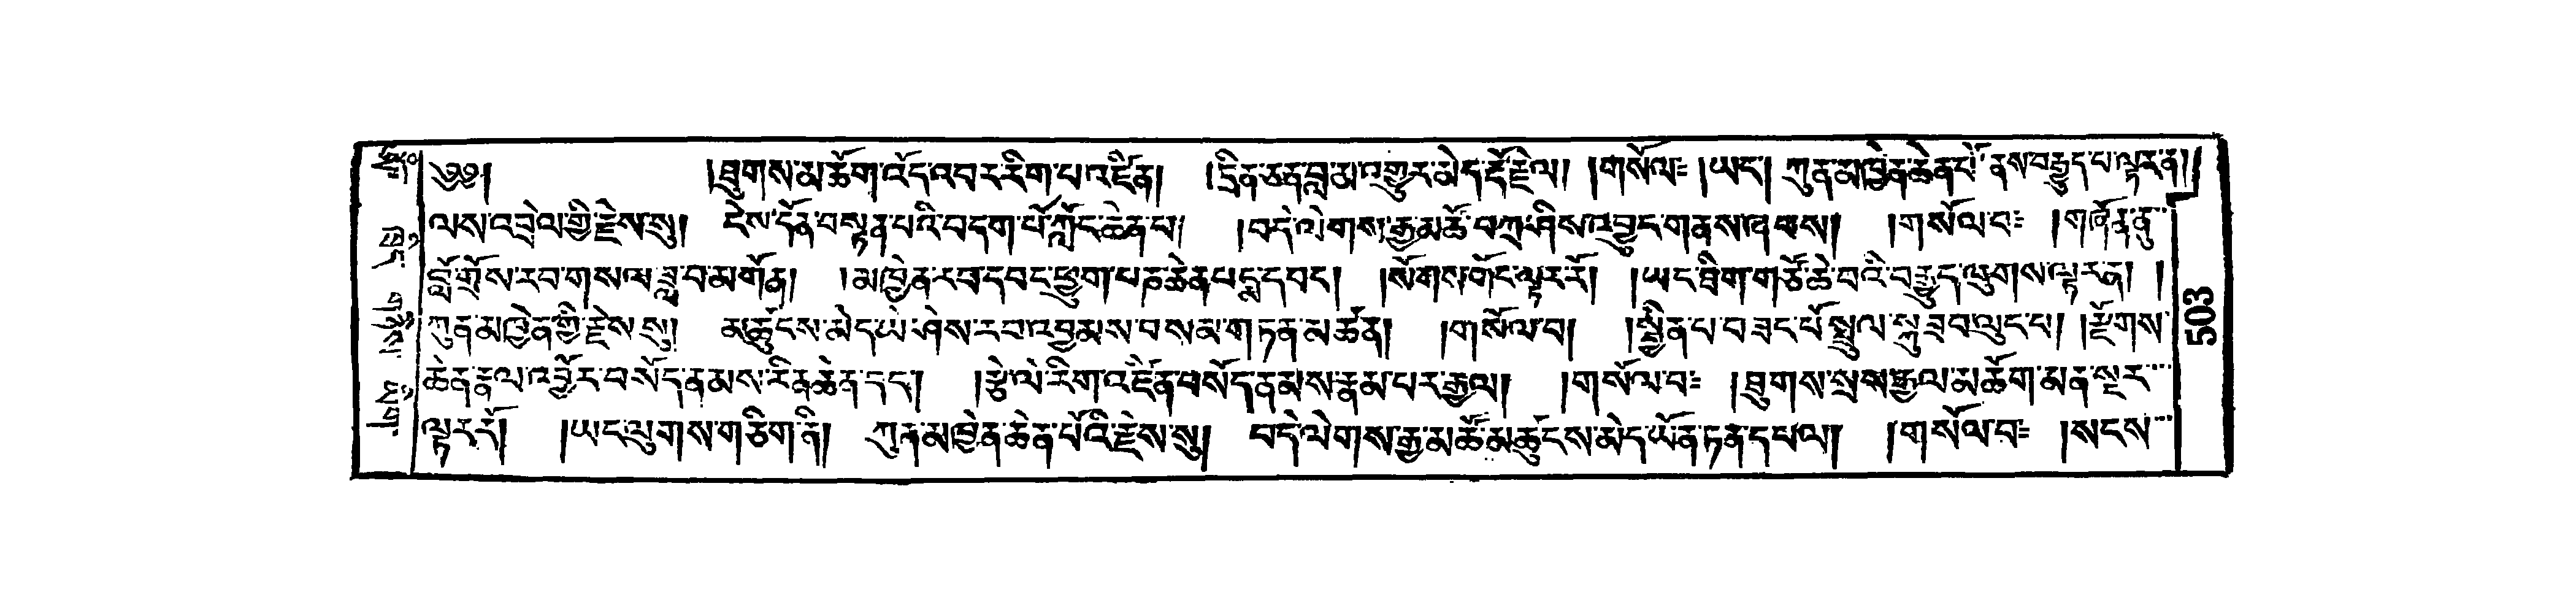 ༄༅། །ཐུགས་མཆོག་འོད་འབར་རིག་པ་འཛིན། །དྲིན་ཅན་བླ་མ་འགྱུར་མེད་རྡོ་རྗེ་ལ། །གསོལ༔ །ཡང་། ཀུན་མཁྱེན་ཆེན་པོ་ནས་བརྒྱུད་པ་ལྟར་ན། །
ལས་འབྲེལ་གྱི་རྗེས་སུ། ངེས་དོན་བསྟན་པའི་བདག་པོ་ཀློང་ཆེན་པ། །བདེ་ལེགས་རྒྱ་མཚོ་བཀྲ་ཤིས་འབྱུང་གནས་ཞབས། །གསོལ་བ༔ །གཞོན་ནུ་
བློ་གྲོས་རབ་གསལ་ཟླ་བ་མགོན། །མཁྱེན་རབ་དབང་ཕྱུག་པཎ་ཆེན་པདྨ་དབང་། །སོགས་གོང་ལྟར་རོ། །ཡང་ཐིག་གཙོ་ཆེ་བའི་བརྒྱུད་ལུགས་ལྟར་ན། །
ཀུན་མཁྱེན་གྱི་རྗེས་སུ། མཚུངས་མེད་ཡེ་ཤེས་རབ་འབྱམས་བསམ་གཏན་མཚན། །གསོལ་བ། །སྤྱིན་པ་བཟང་པོ་སྤྲུལ་སྐུ་ཟབ་ལུང་པ། །རྫོགས་
ཆེན་རྣལ་འབྱོར་བསོད་ནམས་རིན་ཆེན་དང་། །རྩེ་ལེ་རིག་འཛིན་བསོད་ནམས་རྣམ་པར་རྒྱལ། །གསོལ་བ༔ །ཐུགས་སྲས་རྒྱལ་མཆོག་མན་སྔར་
ལྟར་རོ། །ཡང་ལུགས་གཅིག་ནི། ཀུན་མཁྱེན་ཆེན་པོའི་རྗེས་སུ། བདེ་ལེགས་རྒྱ་མཚོ་མཚུངས་མེད་ཡོན་ཏན་དཔལ། །གསོལ་བ༔ །སངས་